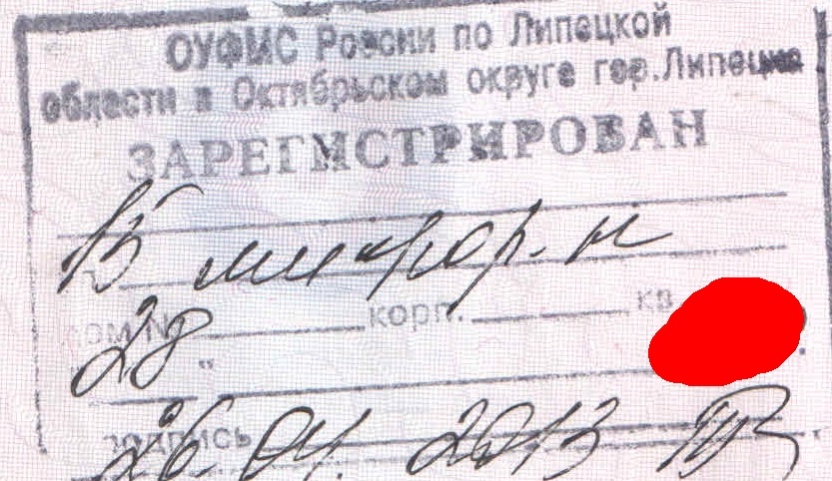 ОУФМС России по Липецкой
области в Октябрьском округе гор.Липецка
ЗАРЕГИСТРИРОВАН
15 микрор-н
дом № 28 корп. кв.
подпись
26. 04. 2013